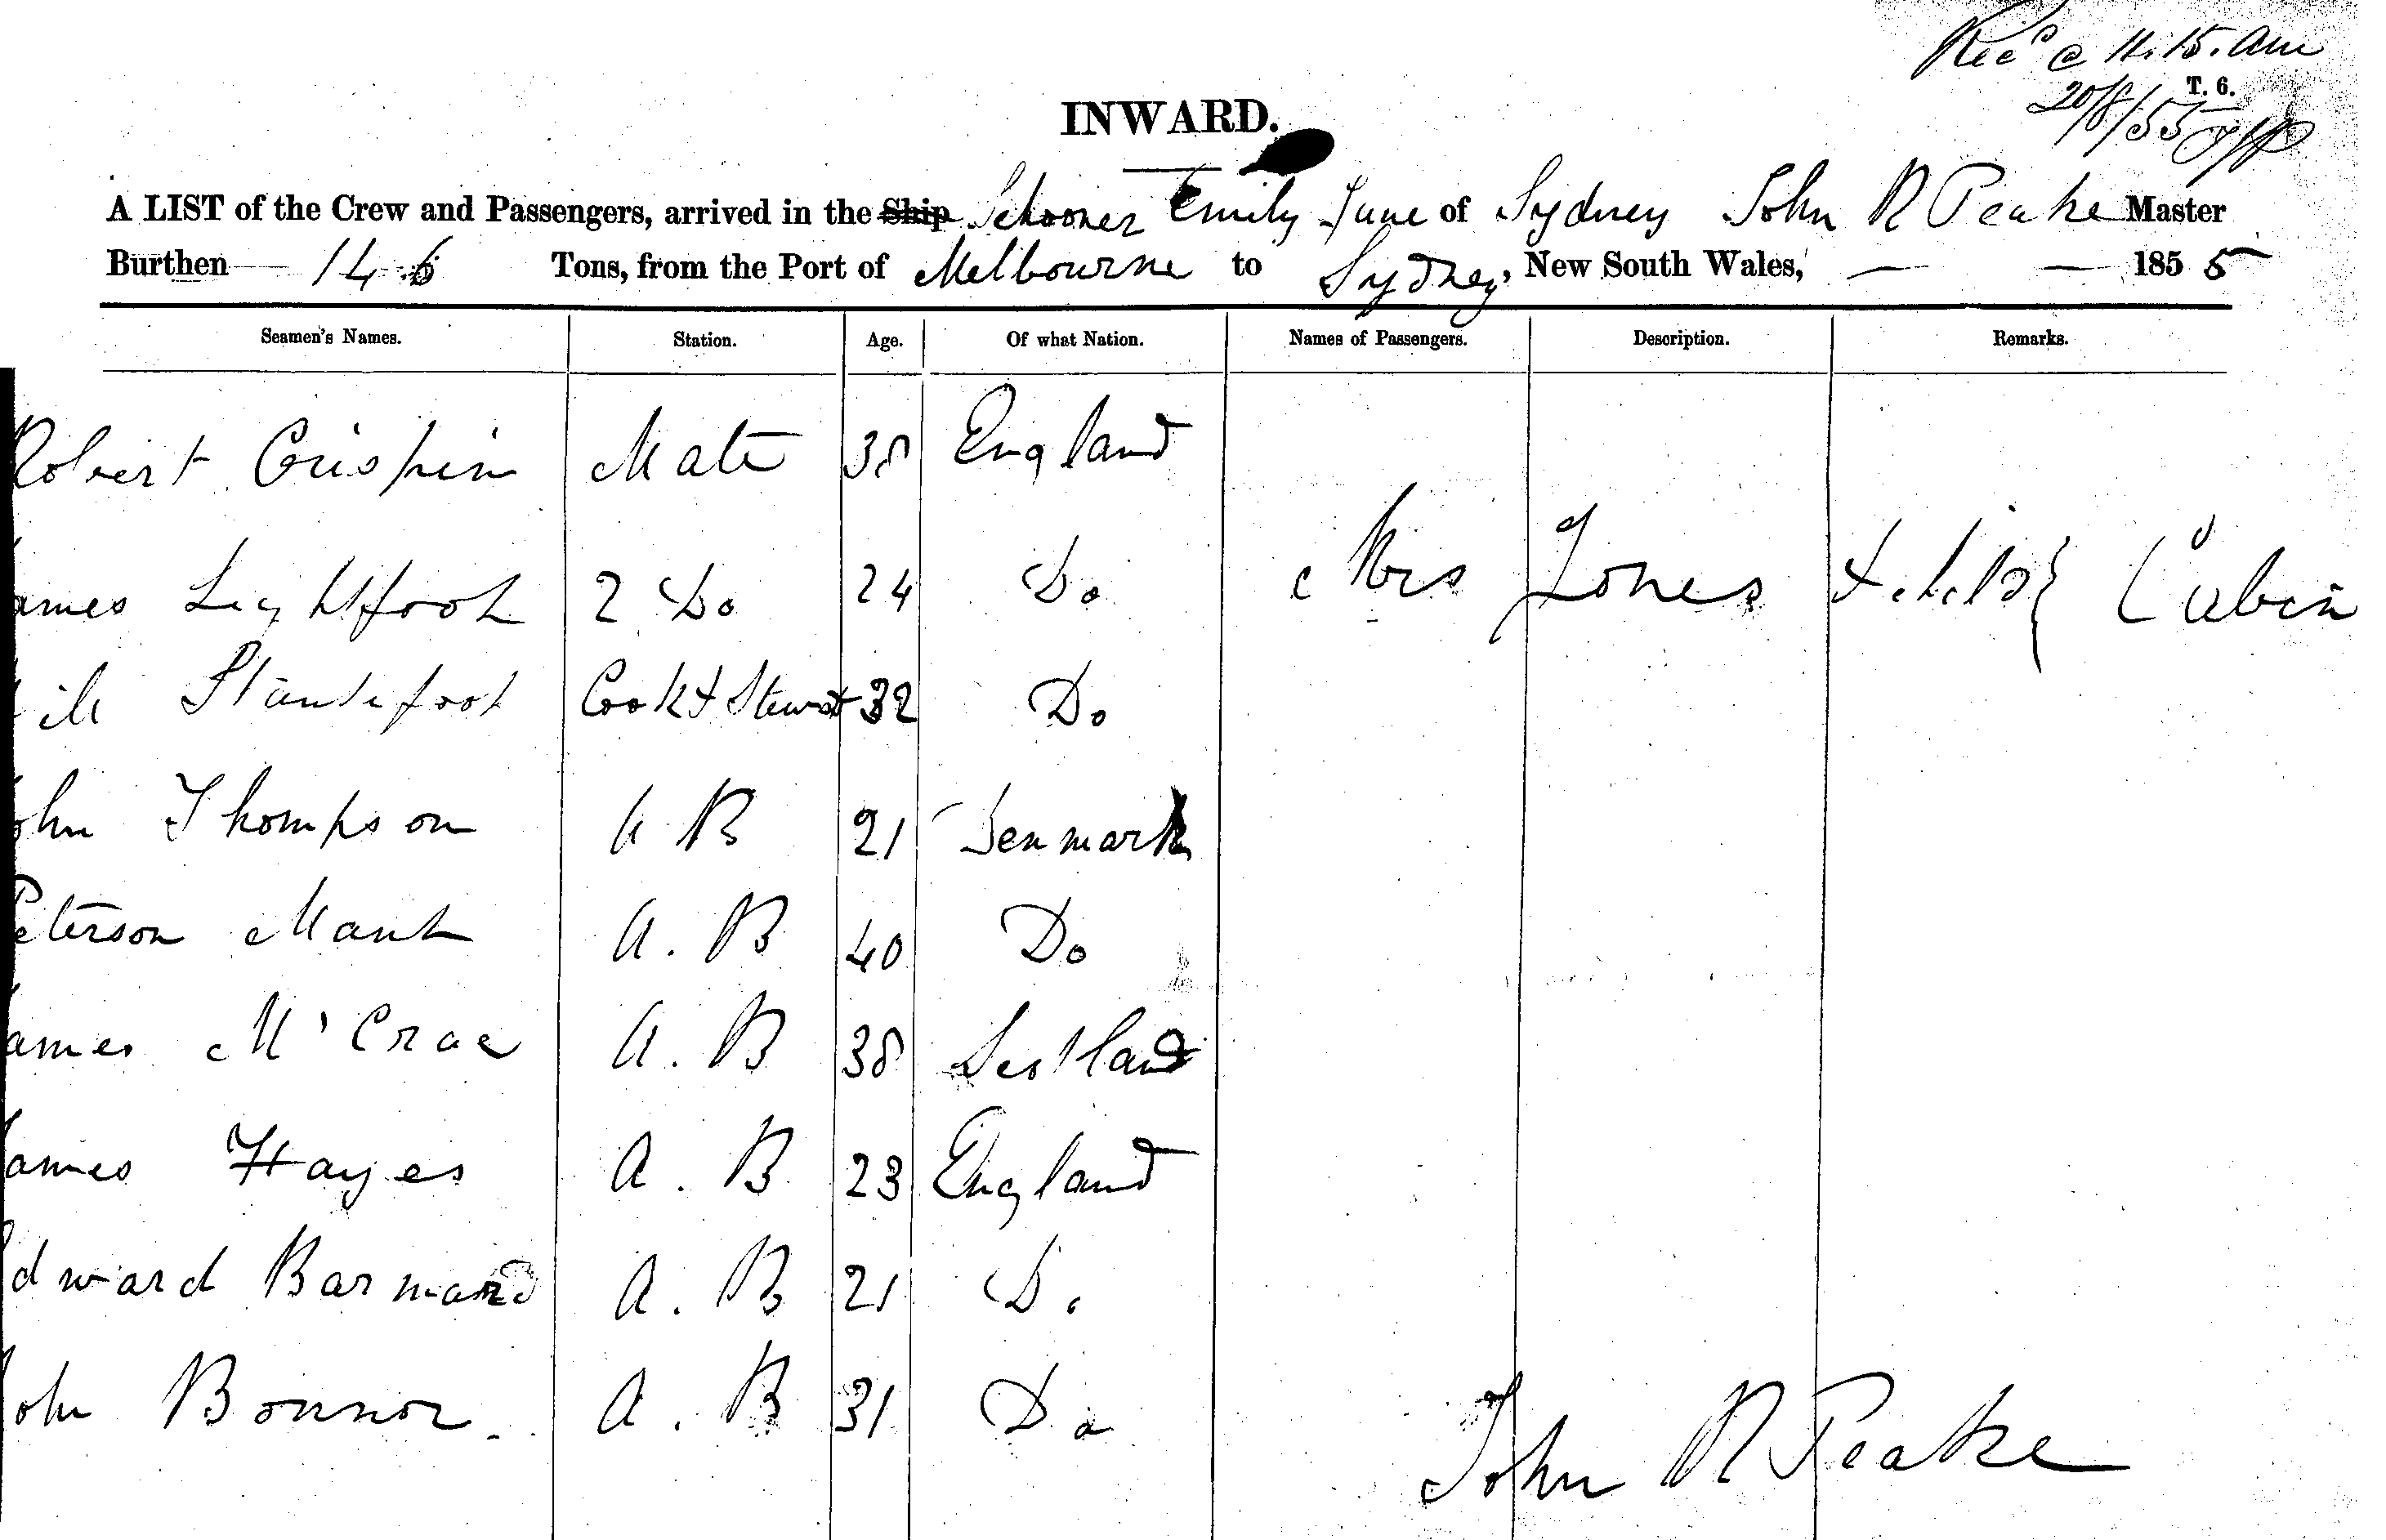 Recd @ 11.15. am
T. 6.
20/8/55
INWARD.
A LIST of the Crew and Passengers, arrived in the Ship Schooner Emily Jane of Sydney John R Peake Master
Burthen 146 Tons, from the Port of Melbourne to Sydney, New South Wales, — — 1855
Seamen's Names. Station. Age. Of what Nation. Names of Passengers. Description. Remarks.
Robert Crispin Mate 38 England
ames Lightfoot 2 Do 24 Do Mrs Jones & child } Cabin
Cook & Steward 32 Do
ohn Thompson A B 21 Denmark
Peterson A. B 40 Do
ames M'Crae A. B 38 Scotland
ames Hayes A. B 23 England
dward Barnard A. B 21 Do
ohn Bonnor. A. B 31 Do
John R Peake